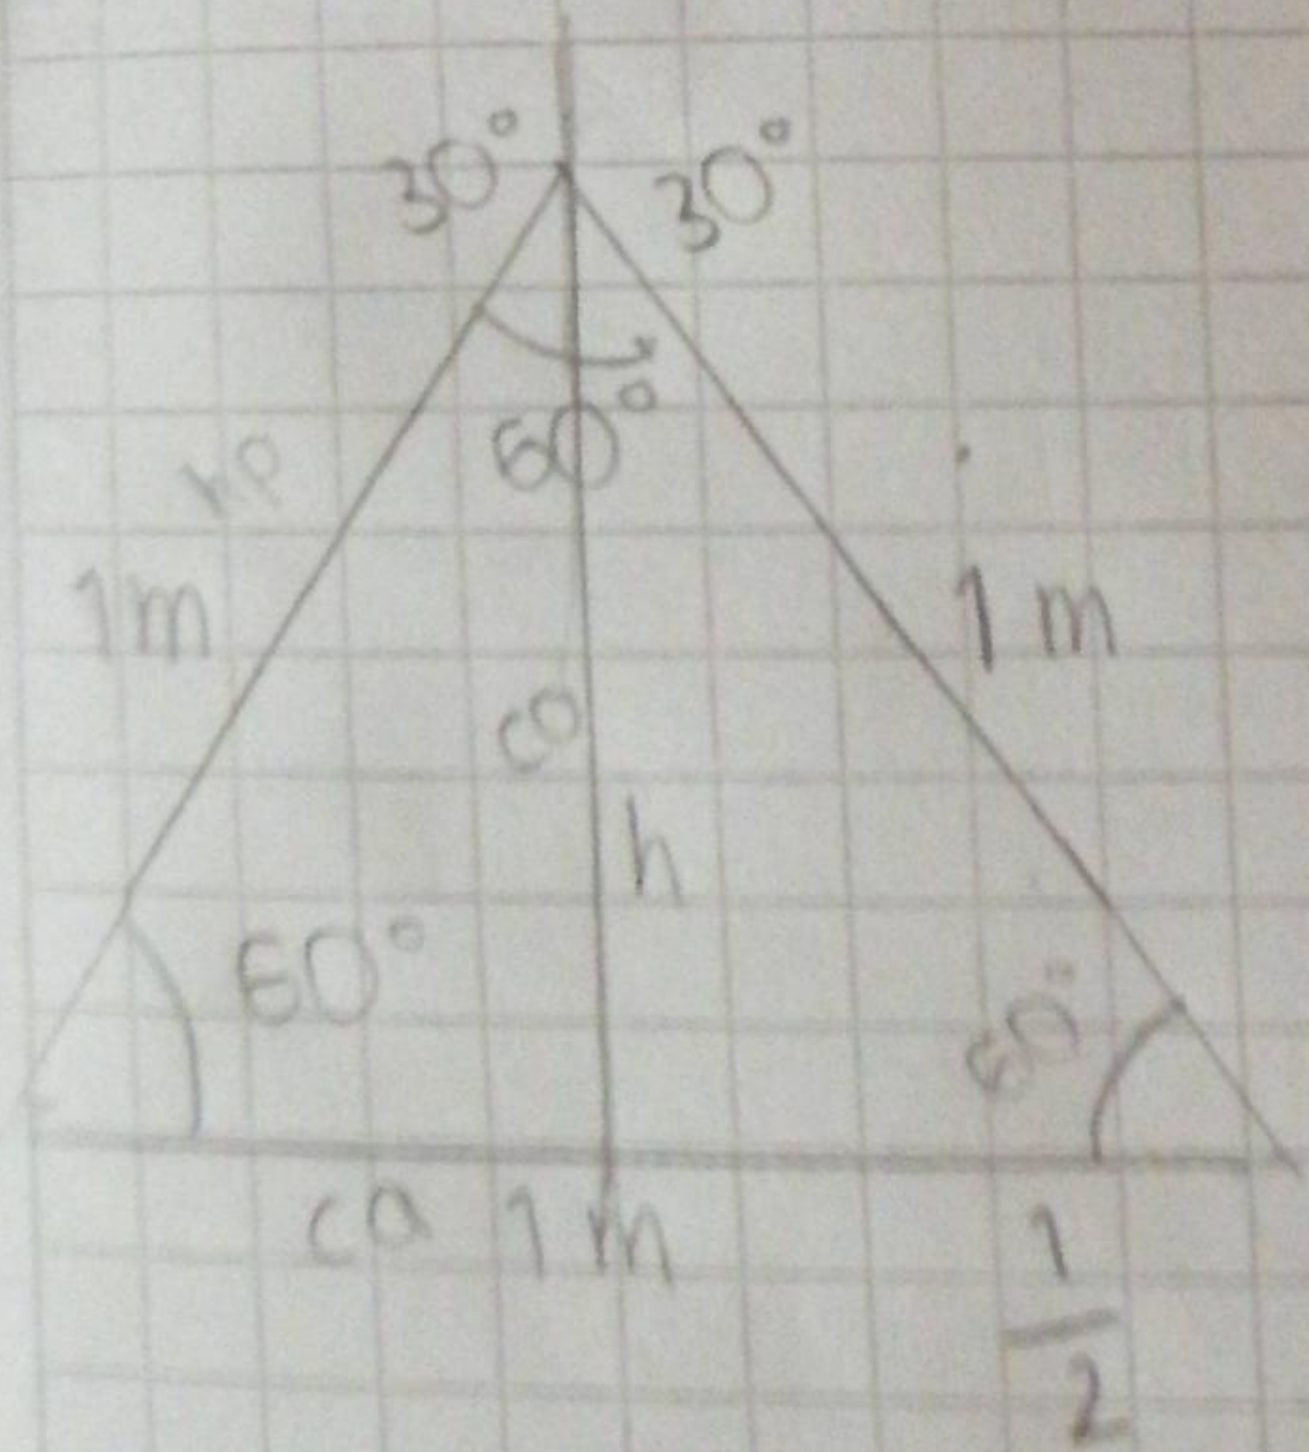 30° 30°
60°
hp
1m 1m
co
h
60° 60°
ca 1m 1/2